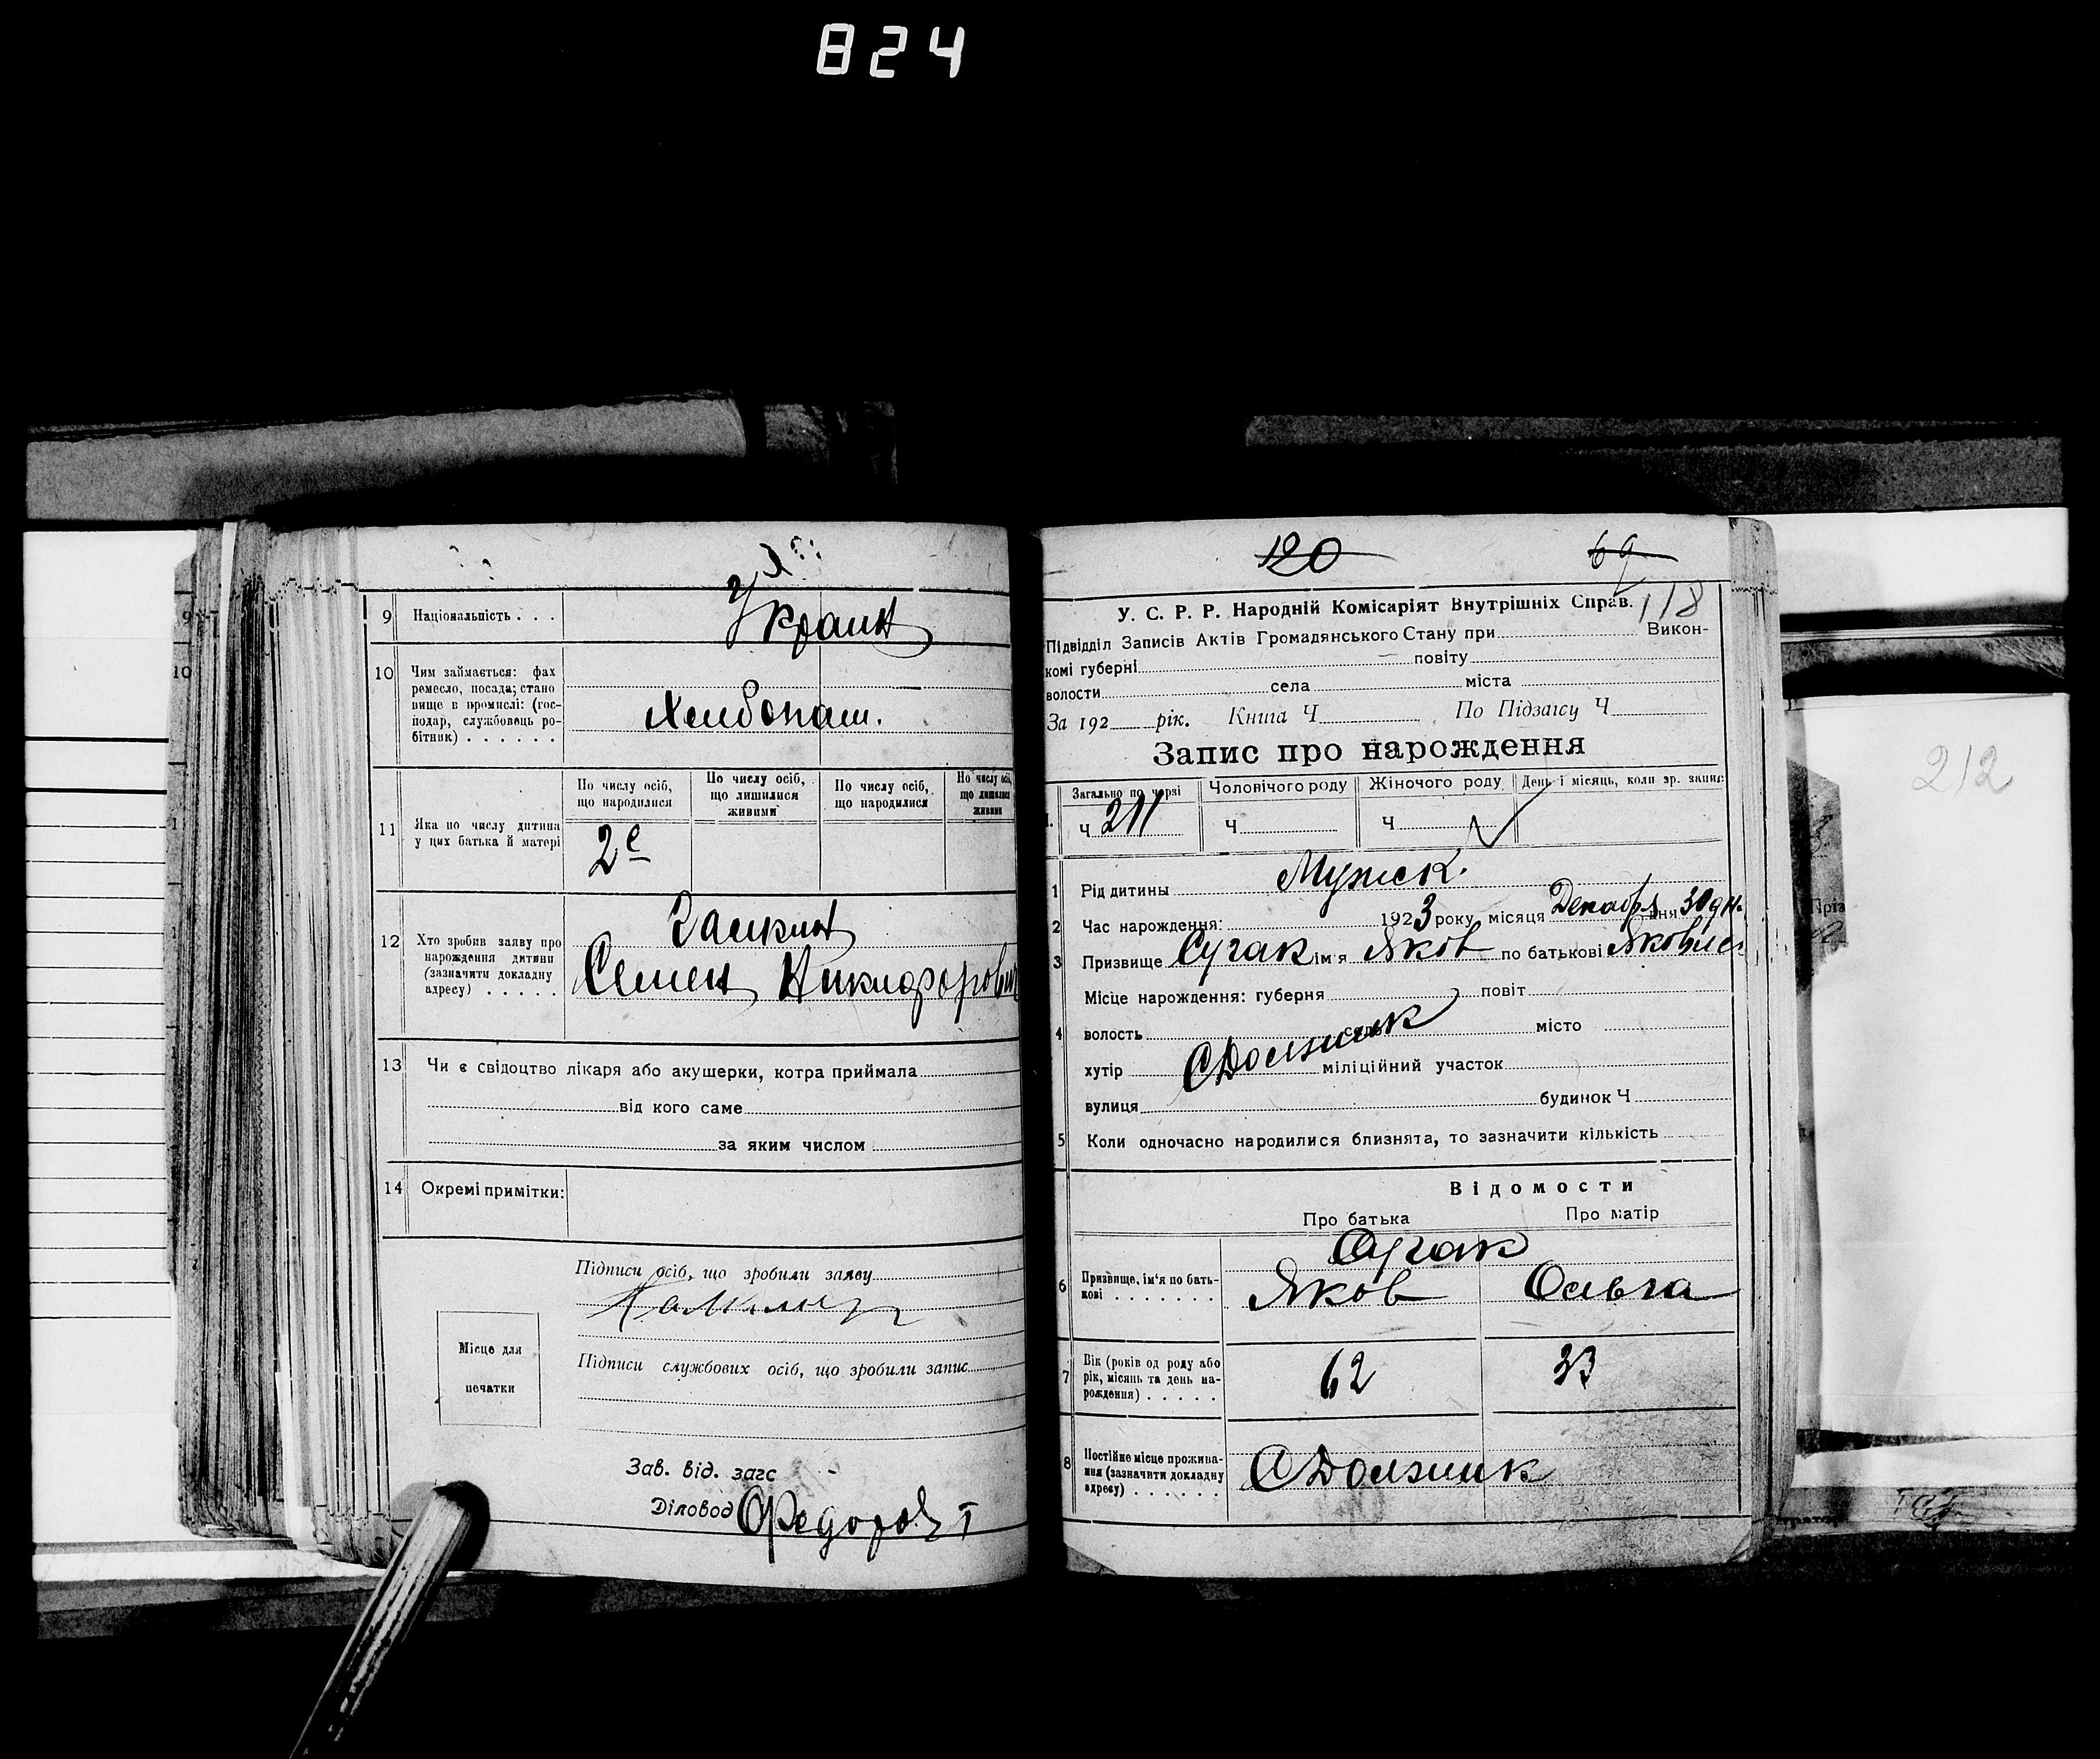 824
9 Національність . . .
Украин
10 Чим займається: фах
ремесло, посада; стано
вище в промислі: (гос-
подар, службовець ро-
бітник) . . . . . .
Хлибопаш.
По числу осіб, що народилися
По числу осіб, що лишилися живими
По числу осіб, що народилися
По числу осіб, що лишилися живими
11 Яка по числу дитина
у цих батька й матері
2е
12 Хто зробив заяву про
нарождення дитини
(зазначити докладну
адресу) . . . . .
Семен Никифорович
13 Чи є свідоцтво лікаря або акушерки, котра приймала
від кого саме
за яким числом
14 Окремі примітки:
Підписи осіб, що зробили заяву
Місце для
печатки
Підписи службових осіб, що зробили запис
Зав. від. загс
Діловод Федоров
120 69
118
У. С. Р. Р. Народній Комісаріят Внутрішніх Справ.
Підвідділ Записів Актів Громадянського Стану при Викон-
комі губерні повіту
волости села міста
За 192 рік. Книга Ч По Підзагсу Ч
Запис про нарождення
Загально по черзі Чоловічого роду Жіночого роду День і місяць, коли зр. запис
Ч 211 Ч Ч
1 Рід дитины Мужск.
2 Час нарождення: 1923 року місяця Декабря дня 30 дн.
3 Призвище Сугак ім'я Яков по батькові Яковлев
Місце нарождення: губерня повіт
4 волость село місто
хутір С Должик міліційний участок
вулиця будинок Ч
5 Коли одночасно народилися близнята, то зазначити кількість
Відомости
Про батька Про матір
Сугак
6 Призвище, ім'я по бать-
кові . . . . . . . Яков Ольга
7 Вік (років од роду або
рік, місяць та день на-
рождення) . . . . . 62 33
8 Постійне місце прожива-
ння (зазначити докладну
адресу) . . . . . . С Должик
212